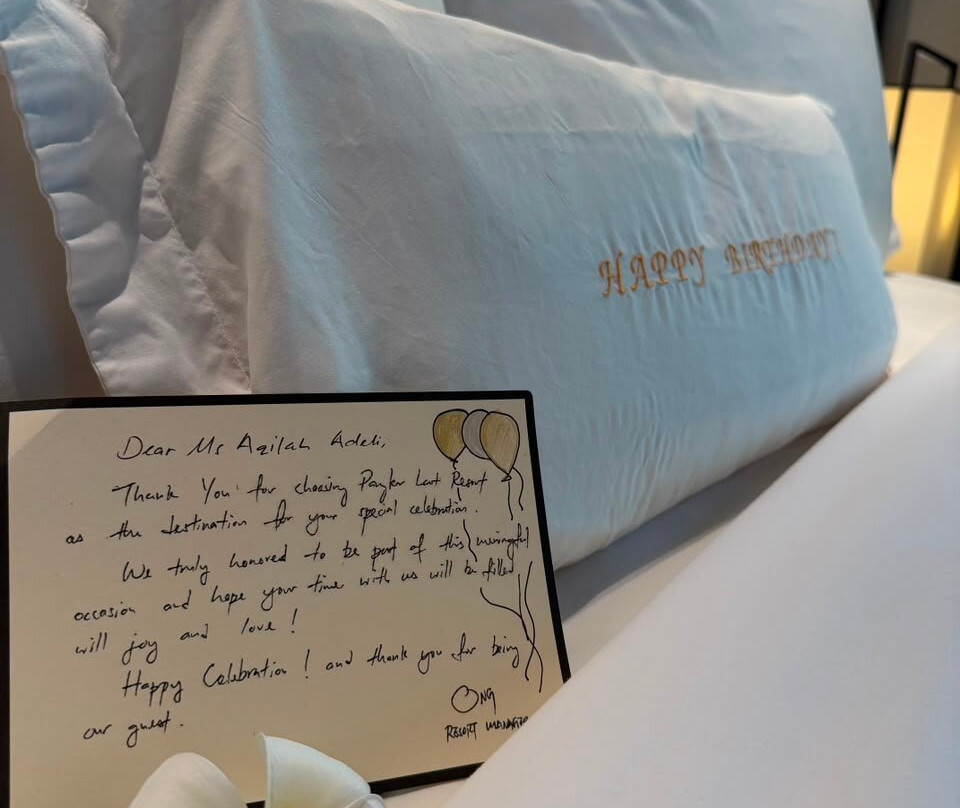 HAPPY BIRTHDAY!
Dear Ms Aqilah Adeli,
Thank You for choosing Pangkor Laut Resort
as the destination for your special celebration.
We truly honored to be part of this meaningful
occasion and hope your time with us will be filled
will joy and love!
Happy Celebration! and thank you for being
our guest.
ONG
RESORT MANAGER